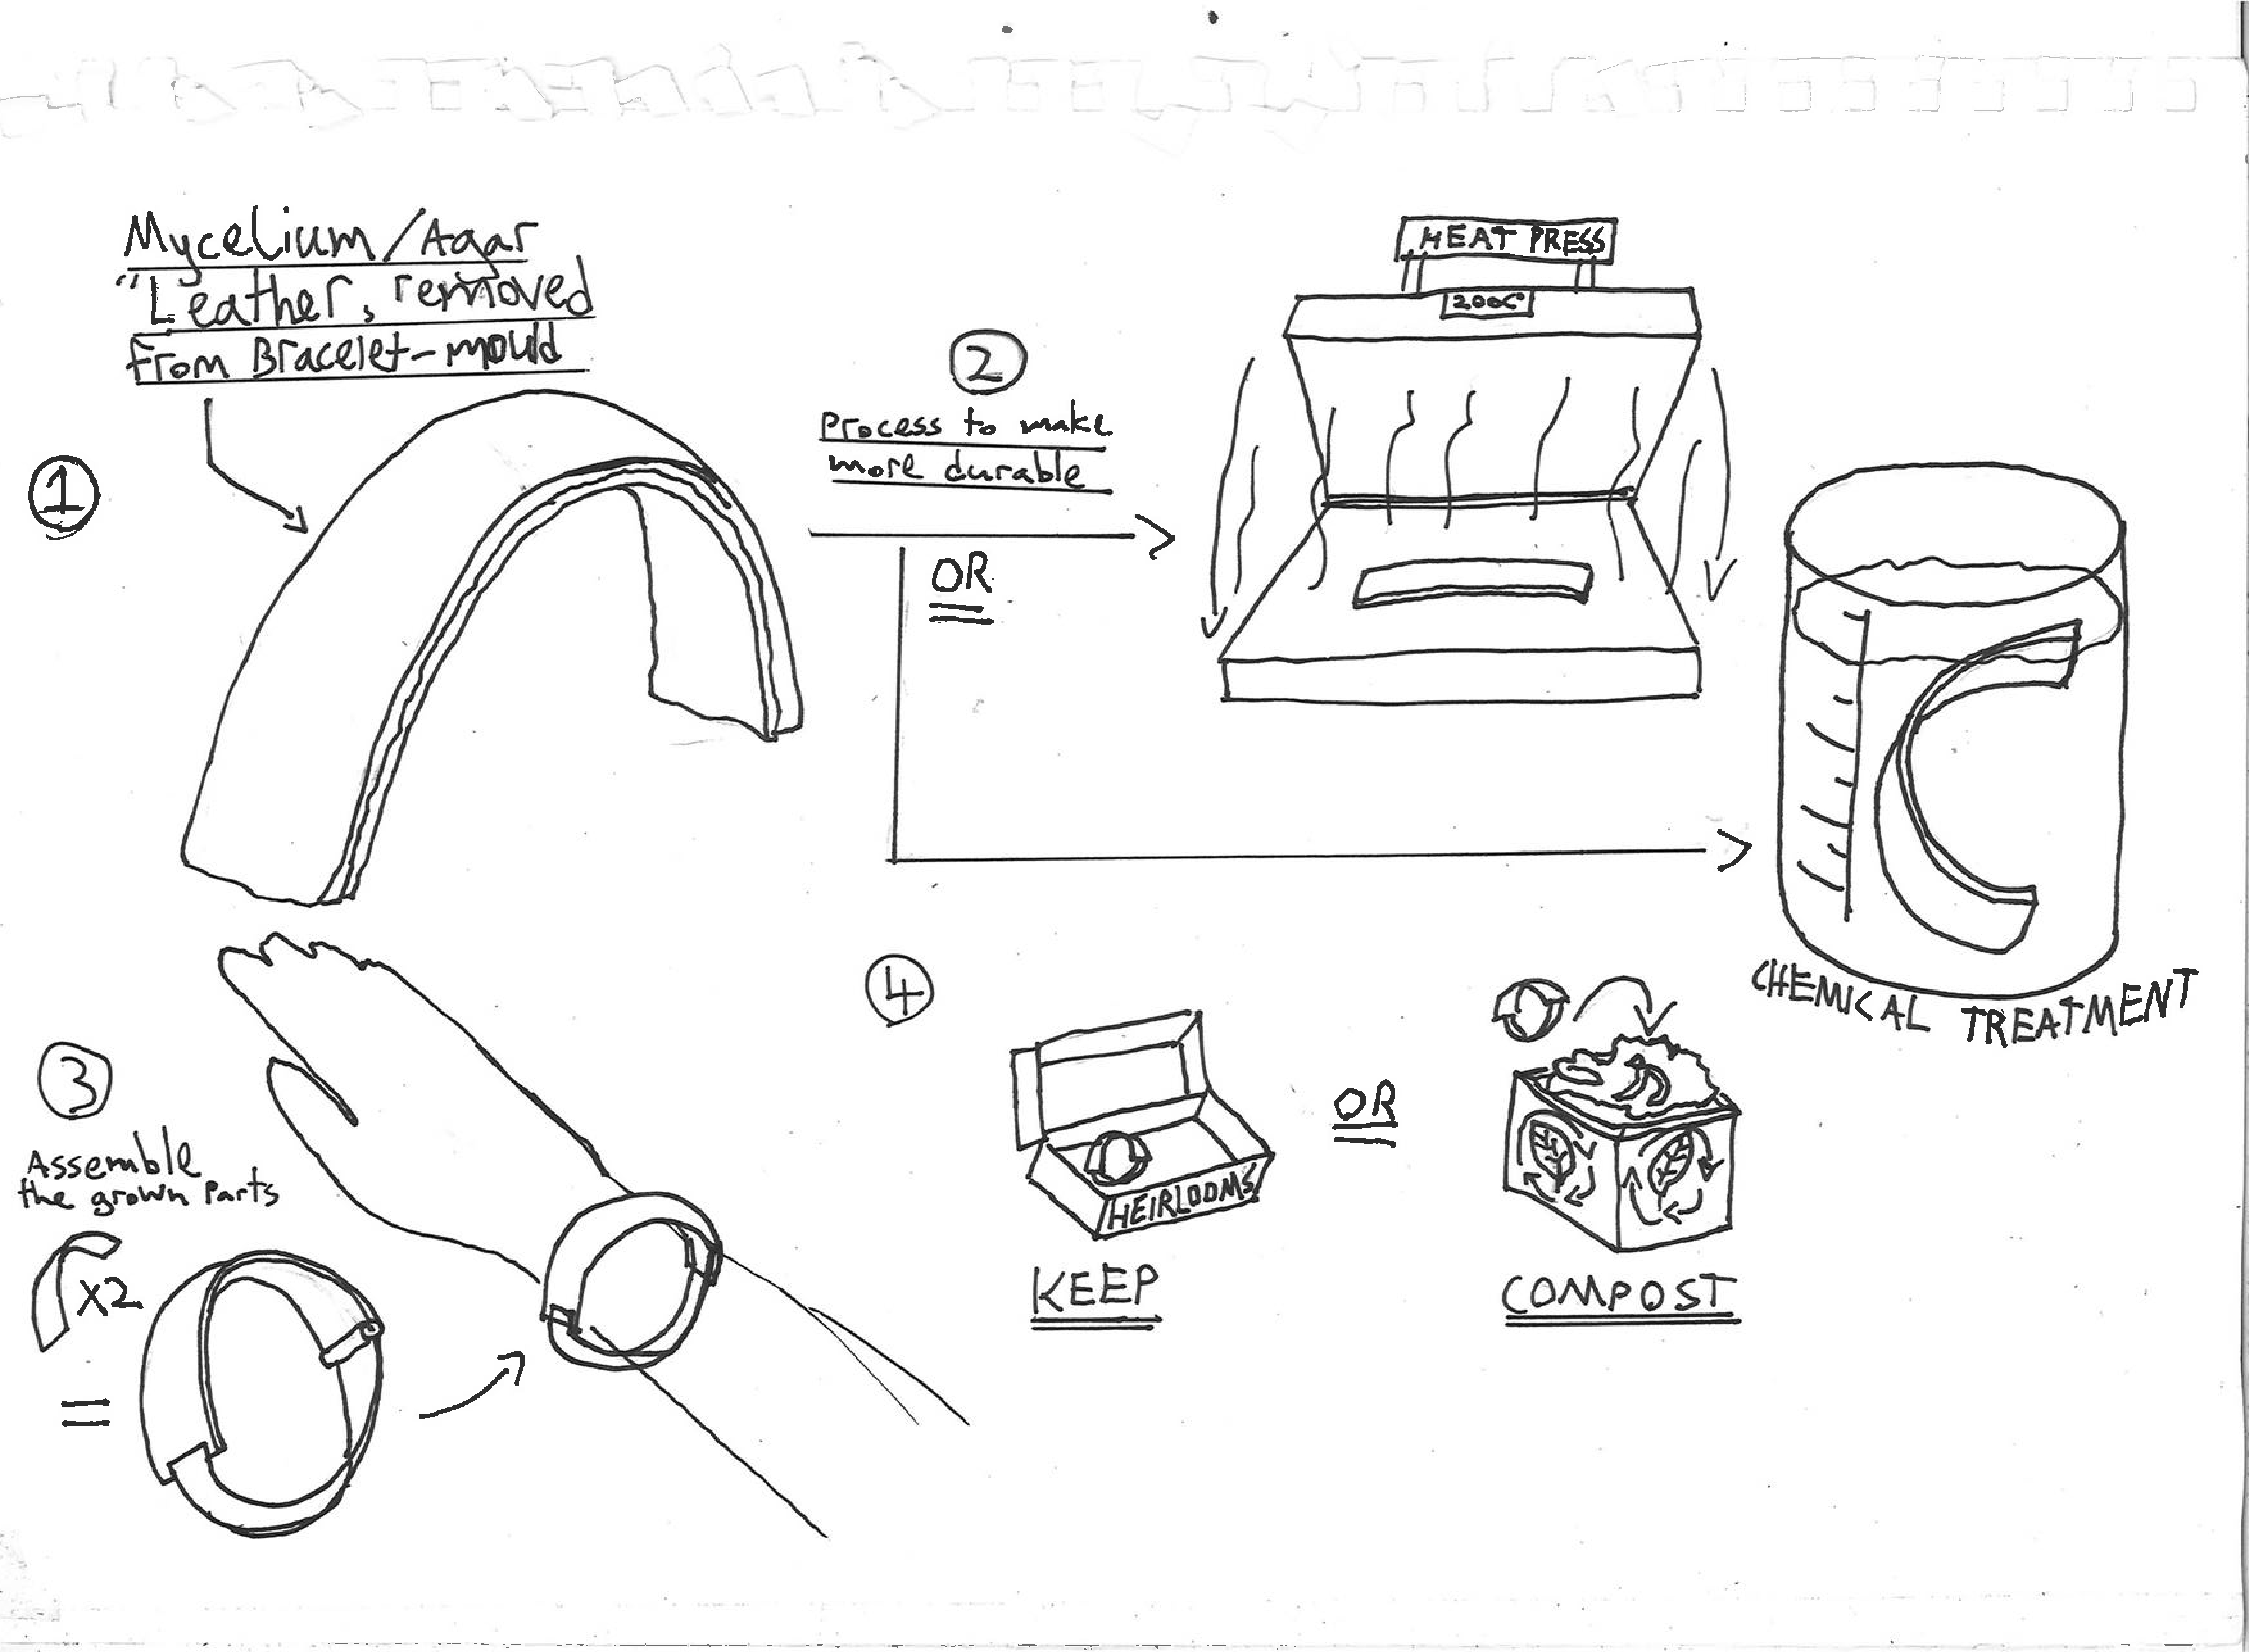 Mycelium/Agar
"Leather, removed
from Bracelet-mould
1
2
Process to make
more durable
OR
HEAT PRESS
200C
CHEMICAL TREATMENT
3
Assemble
the grown parts
x2
=
4
HEIRLOOMS
KEEP
OR
COMPOST